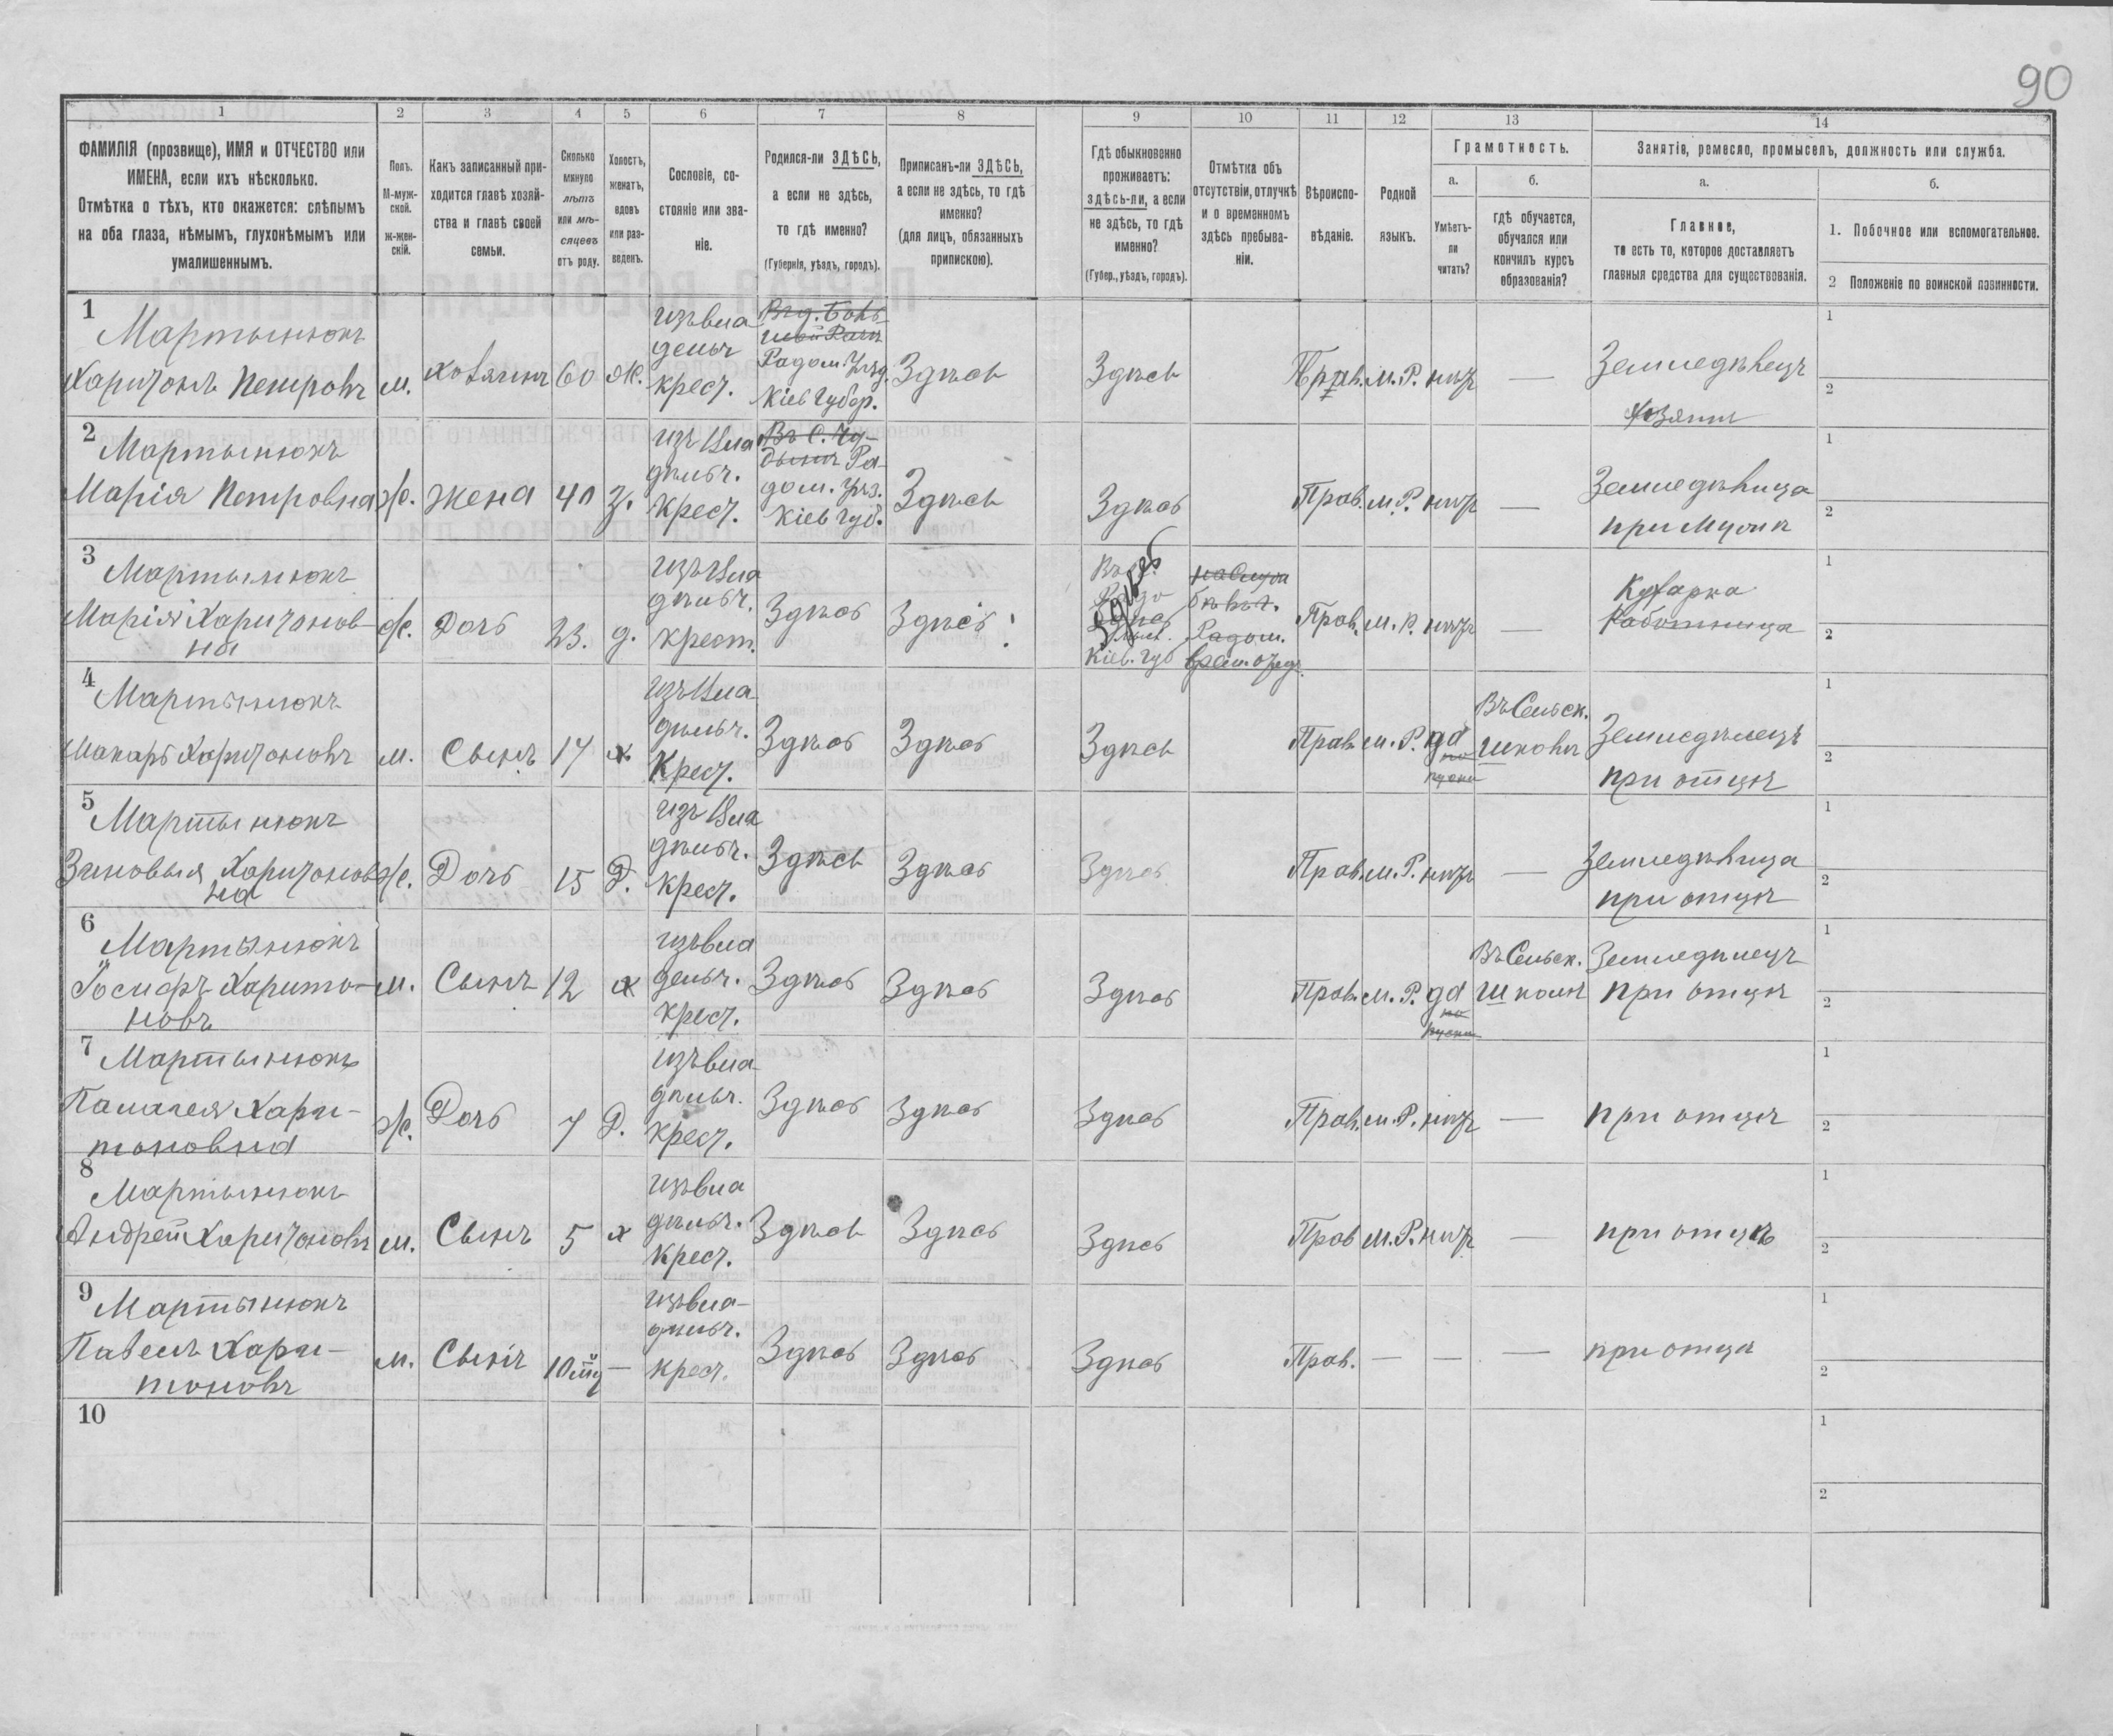 90
1 2 3 4 5 6 7 8 9 10 11 12 13 14
ФАМИЛІЯ (прозвище), ИМЯ и ОТЧЕСТВО или
ИМЕНА, если ихъ нѣсколько.
Отмѣтка о тѣхъ, кто окажется: слѣпымъ
на оба глаза, нѣмымъ, глухонѣмымъ или
умалишеннымъ.
Полъ.
М-муж-
ской.
ж-жен-
скій.
Какъ записанный при-
ходится главѣ хозяй-
ства и главѣ своей
семьи.
Сколько
минуло
лѣтъ
или мѣ-
сяцевъ
отъ роду.
Холостъ,
женатъ,
вдовъ
или раз-
веденъ.
Сословіе, со-
стояніе или зва-
ніе.
Родился-ли ЗДѢСЬ,
а если не здѣсь,
то гдѣ именно?
(Губернія, уѣздъ, городъ).
Приписанъ-ли ЗДѢСЬ,
а если не здѣсь, то гдѣ
именно?
(для лицъ, обязанныхъ
припискою).
Гдѣ обыкновенно
проживаетъ:
здѣсь-ли, а если
не здѣсь, то гдѣ
именно?
(Губер., уѣздъ, городъ).
Отмѣтка объ
отсутствіи, отлучкѣ
и о временномъ
здѣсь пребыва-
ніи.
Вѣроиспо-
вѣданіе.
Родной
языкъ.
Грамотность.
а.
Умѣетъ-
ли
читать?
б.
гдѣ обучается,
обучался или
кончилъ курсъ
образованія?
Занятіе, ремесло, промыселъ, должность или служба.
а.
Главное,
то есть то, которое доставляетъ
главныя средства для существованія.
б.
1. Побочное или вспомогательное.
2 Положеніе по воинской повинности.
1
Мартынюкъ
Харитонъ Петровъ
м.
хозяинъ
60
ж.
изъ вла
дельч
крест.
Радом. Уѣзд.
Кіев Губер.
Здѣсь
Здѣсь
Прав.
М.Р.
нѣтъ
—
Земледѣлецъ
хозяинъ
1
2
2
Мартынюкъ
Марія Петровна
ж.
жена
40
з.
изъ Вла
дѣльч.
крест.
Въ с. Чу-
дынѣ Ра-
дом. Уѣз.
Кіев Губ.
Здѣсь
Здѣсь
Прав.
М.Р.
нѣтъ
—
Земледѣлица
при Мужѣ
1
2
3
Мартынюкъ
Марія Харитонов-
на
ж.
Дочь
23.
д.
изъ Вла
дѣльч.
крест.
Здѣсь
Здѣсь
Здѣсь
Кіев. Губ
Радом.
Прав.
М.Р.
нѣтъ
—
Кухарка
работница
1
2
4
Мартынюкъ
Макаръ Харитоновъ
м.
Сынъ
17
х
изъ Вла
дѣльч.
Крест.
Здѣсь
Здѣсь
Здѣсь
Прав.
М.Р.
да
по
руски
Въ Сельск.
школѣ
Земледѣлецъ
при отцѣ
1
2
5
Мартынюкъ
Зиновыя Харитонов
на
ж.
Дочь
15
Д.
изъ Вла
дѣльч.
крест.
Здѣсь
Здѣсь
Здѣсь
Прав.
М.Р.
нѣтъ
—
Земледѣлица
при отцѣ
1
2
6
Мартынюкъ
Іосифъ Харито-
новъ
м.
Сынъ
12
х
изъ вла
дельч.
крест.
Здѣсь
Здѣсь
Здѣсь
Прав.
М.Р.
да
по
руски
Въ Сельск.
школѣ
Земледѣлецъ
при отцѣ
1
2
7
Мартынюкъ
Палагея Хари-
тоновна
ж.
Дочь
7
Д.
изъ вла
дѣльч.
крест.
Здѣсь
Здѣсь
Здѣсь
Прав.
М.Р.
нѣтъ
—
при отцѣ
1
2
8
Мартынюкъ
Андрей Харитоновъ
м.
Сынъ
5
х
изъ вла
дѣльч.
Крест.
Здѣсь
Здѣсь
Здѣсь
Прав
М.Р.
нѣтъ
—
при отцѣ
1
2
9
Мартынюкъ
Павелъ Хари-
тоновъ
м.
Сынъ
—
изъ вла-
дѣльч.
крест.
Здѣсь
Здѣсь
Здѣсь
Прав.
—
—
—
при отцѣ
1
2
10
1
2